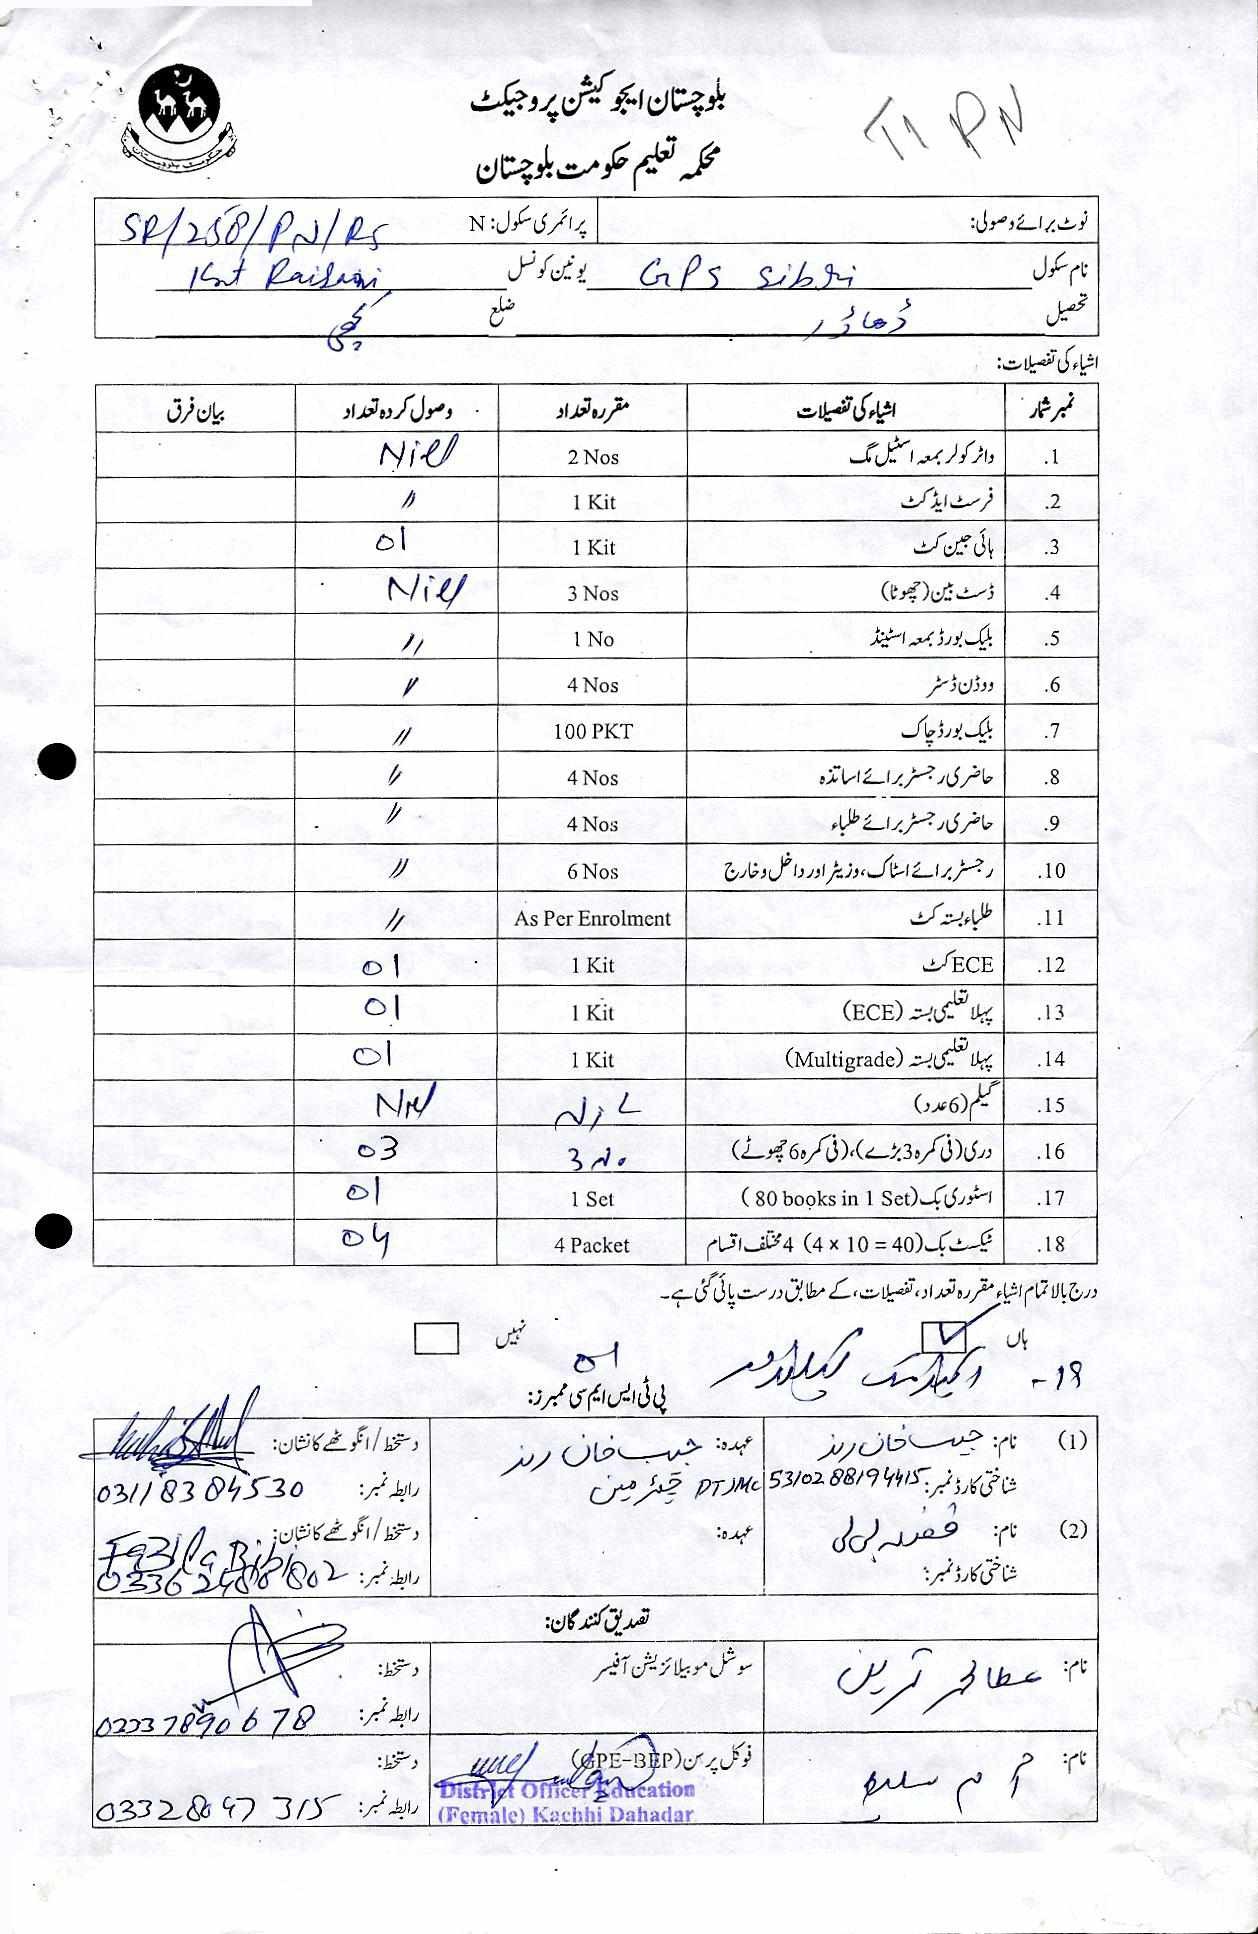 بلوچستان ایجوکیشن پروجیکٹ
T1 PN
محکمہ تعلیم حکومت بلوچستان
نوٹ برائے وصولی: پرائمری سکول: N SR/258/PN/RS
نام سکول GPS Sibri یونین کونسل Kot Raisani
تحصیل ڈھاڈر ضلع کچھی
اشیاء کی تفصیلات:
نمبر شمار اشیاء کی تفصیلات مقررہ تعداد وصول کردہ تعداد بیان فرق
1. واٹر کولر بمعہ اسٹیل مگ 2 Nos Nill
2. فرسٹ ایڈ کٹ 1 Kit "
3. ہائی جین کٹ 1 Kit 01
4. ڈسٹ بین (چھوٹا) 3 Nos Nill
5. بلیک بورڈ بمعہ اسٹینڈ 1 No "
6. ووڈن ڈسٹر 4 Nos "
7. بلیک بورڈ چاک 100 PKT "
8. حاضری رجسٹر برائے اساتذہ 4 Nos "
9. حاضری رجسٹر برائے طلباء 4 Nos "
10. رجسٹر برائے اسٹاک، وزیٹر اور داخل و خارج 6 Nos "
11. طلباء بستہ کٹ As Per Enrolment "
12. ECE کٹ 1 Kit 01
13. پہلا تعلیمی بستہ (ECE) 1 Kit 01
14. پہلا تعلیمی بستہ (Multigrade) 1 Kit 01
15. گیلم (6 عدد) NIL Nill
16. دری (فی کمرہ 3 بڑے)، (فی کمرہ 6 چھوٹے) 3 No 03
17. اسٹوری بک (80 books in 1 Set) 1 Set 01
18. ٹیکسٹ بک (4 x 10 = 40) 4 مختلف اقسام 4 Packet 04
درج بالا تمام اشیاء مقررہ تعداد، تفصیلات، کے مطابق درست پائی گئی ہے۔
ہاں ✓ نہیں
19- اکیڈمک کیلنڈر 01
پی ٹی ایس ایم سی ممبرز:
(1) نام: حبیب خان رند عہدہ: حبیب خان رند دستخط / انگوٹھے کا نشان:
شناختی کارڈ نمبر: 5310288194415 PTSMC چیئرمین رابطہ نمبر: 03118384530
(2) نام: فضیلہ بی بی عہدہ: دستخط / انگوٹھے کا نشان: Fazila Bibi
شناختی کارڈ نمبر: رابطہ نمبر: 03362488802
تصدیق کنندگان:
نام: ترین سوشل موبیلائزیشن آفیسر دستخط:
رابطہ نمبر: 03337890678
نام: فوکل پرسن (GPE-BEP) دستخط:
District Officer Education
(Female) Kachhi Dahadar
رابطہ نمبر: 03328047315